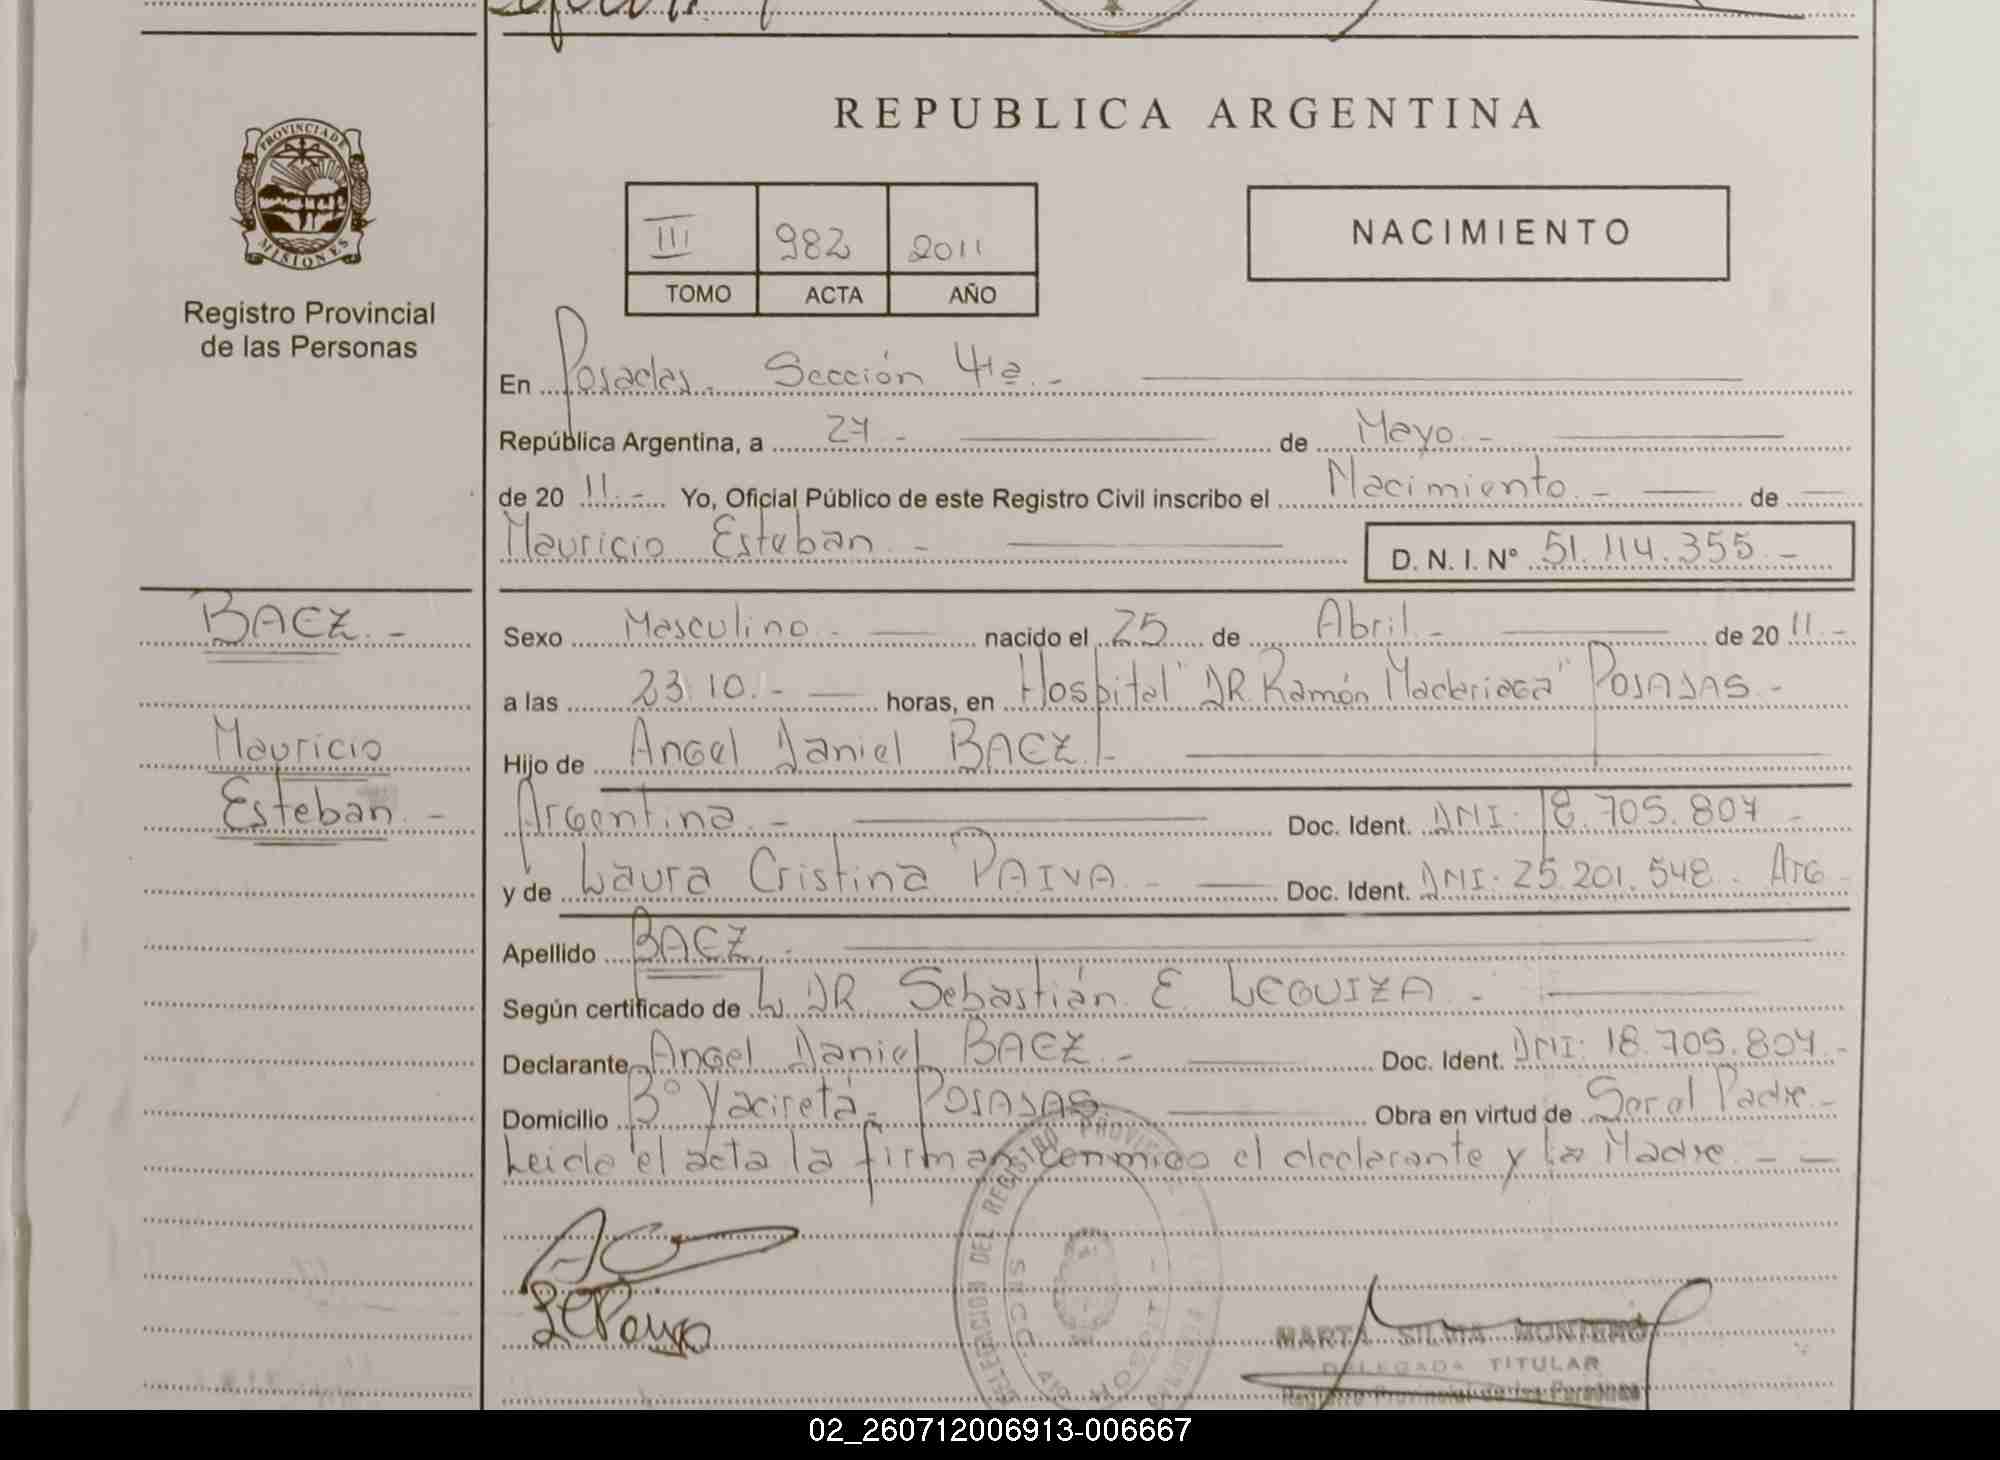 REPUBLICA ARGENTINA
PROVINCIA DE
MISIONES
Registro Provincial
de las Personas
III 982 2011
TOMO ACTA AÑO
NACIMIENTO
En Posadas. Sección 4ta.-
República Argentina, a 27 - de Mayo -
de 20 11.- Yo, Oficial Público de este Registro Civil inscribo el Nacimiento - de
Mauricio Esteban - D. N. I. Nº 51.114.355.-
BAEZ.-
Mauricio
Esteban.-
Sexo Masculino - nacido el 25 de Abril.- de 20 11.-
a las 23.10.- horas, en Hospital "DR. Ramón Madariaga" POSADAS.-
Hijo de Angel Daniel BAEZ.-
Argentina.- Doc. Ident. DNI. 18.705.807 -
y de Laura Cristina PAIVA.- Doc. Ident. DNI. 25.201.548. Arg -
Apellido BAEZ.-
Según certificado de DR Sebastián E. LEGUIZA -
Declarante Angel Daniel BAEZ.- Doc. Ident. DNI: 18.705.807.-
Domicilio Bº Yacireta. POSADAS. Obra en virtud de Ser el Padre.-
Leida el acta la firman conmigo el declarante y la Madre.- -
DELEGACION DEL REGISTRO PROVINCIAL
SECC. 4ta
MARTA SILVIA MONTERO
DELEGADA TITULAR
Registro Provincial de las Personas
02_260712006913-006667